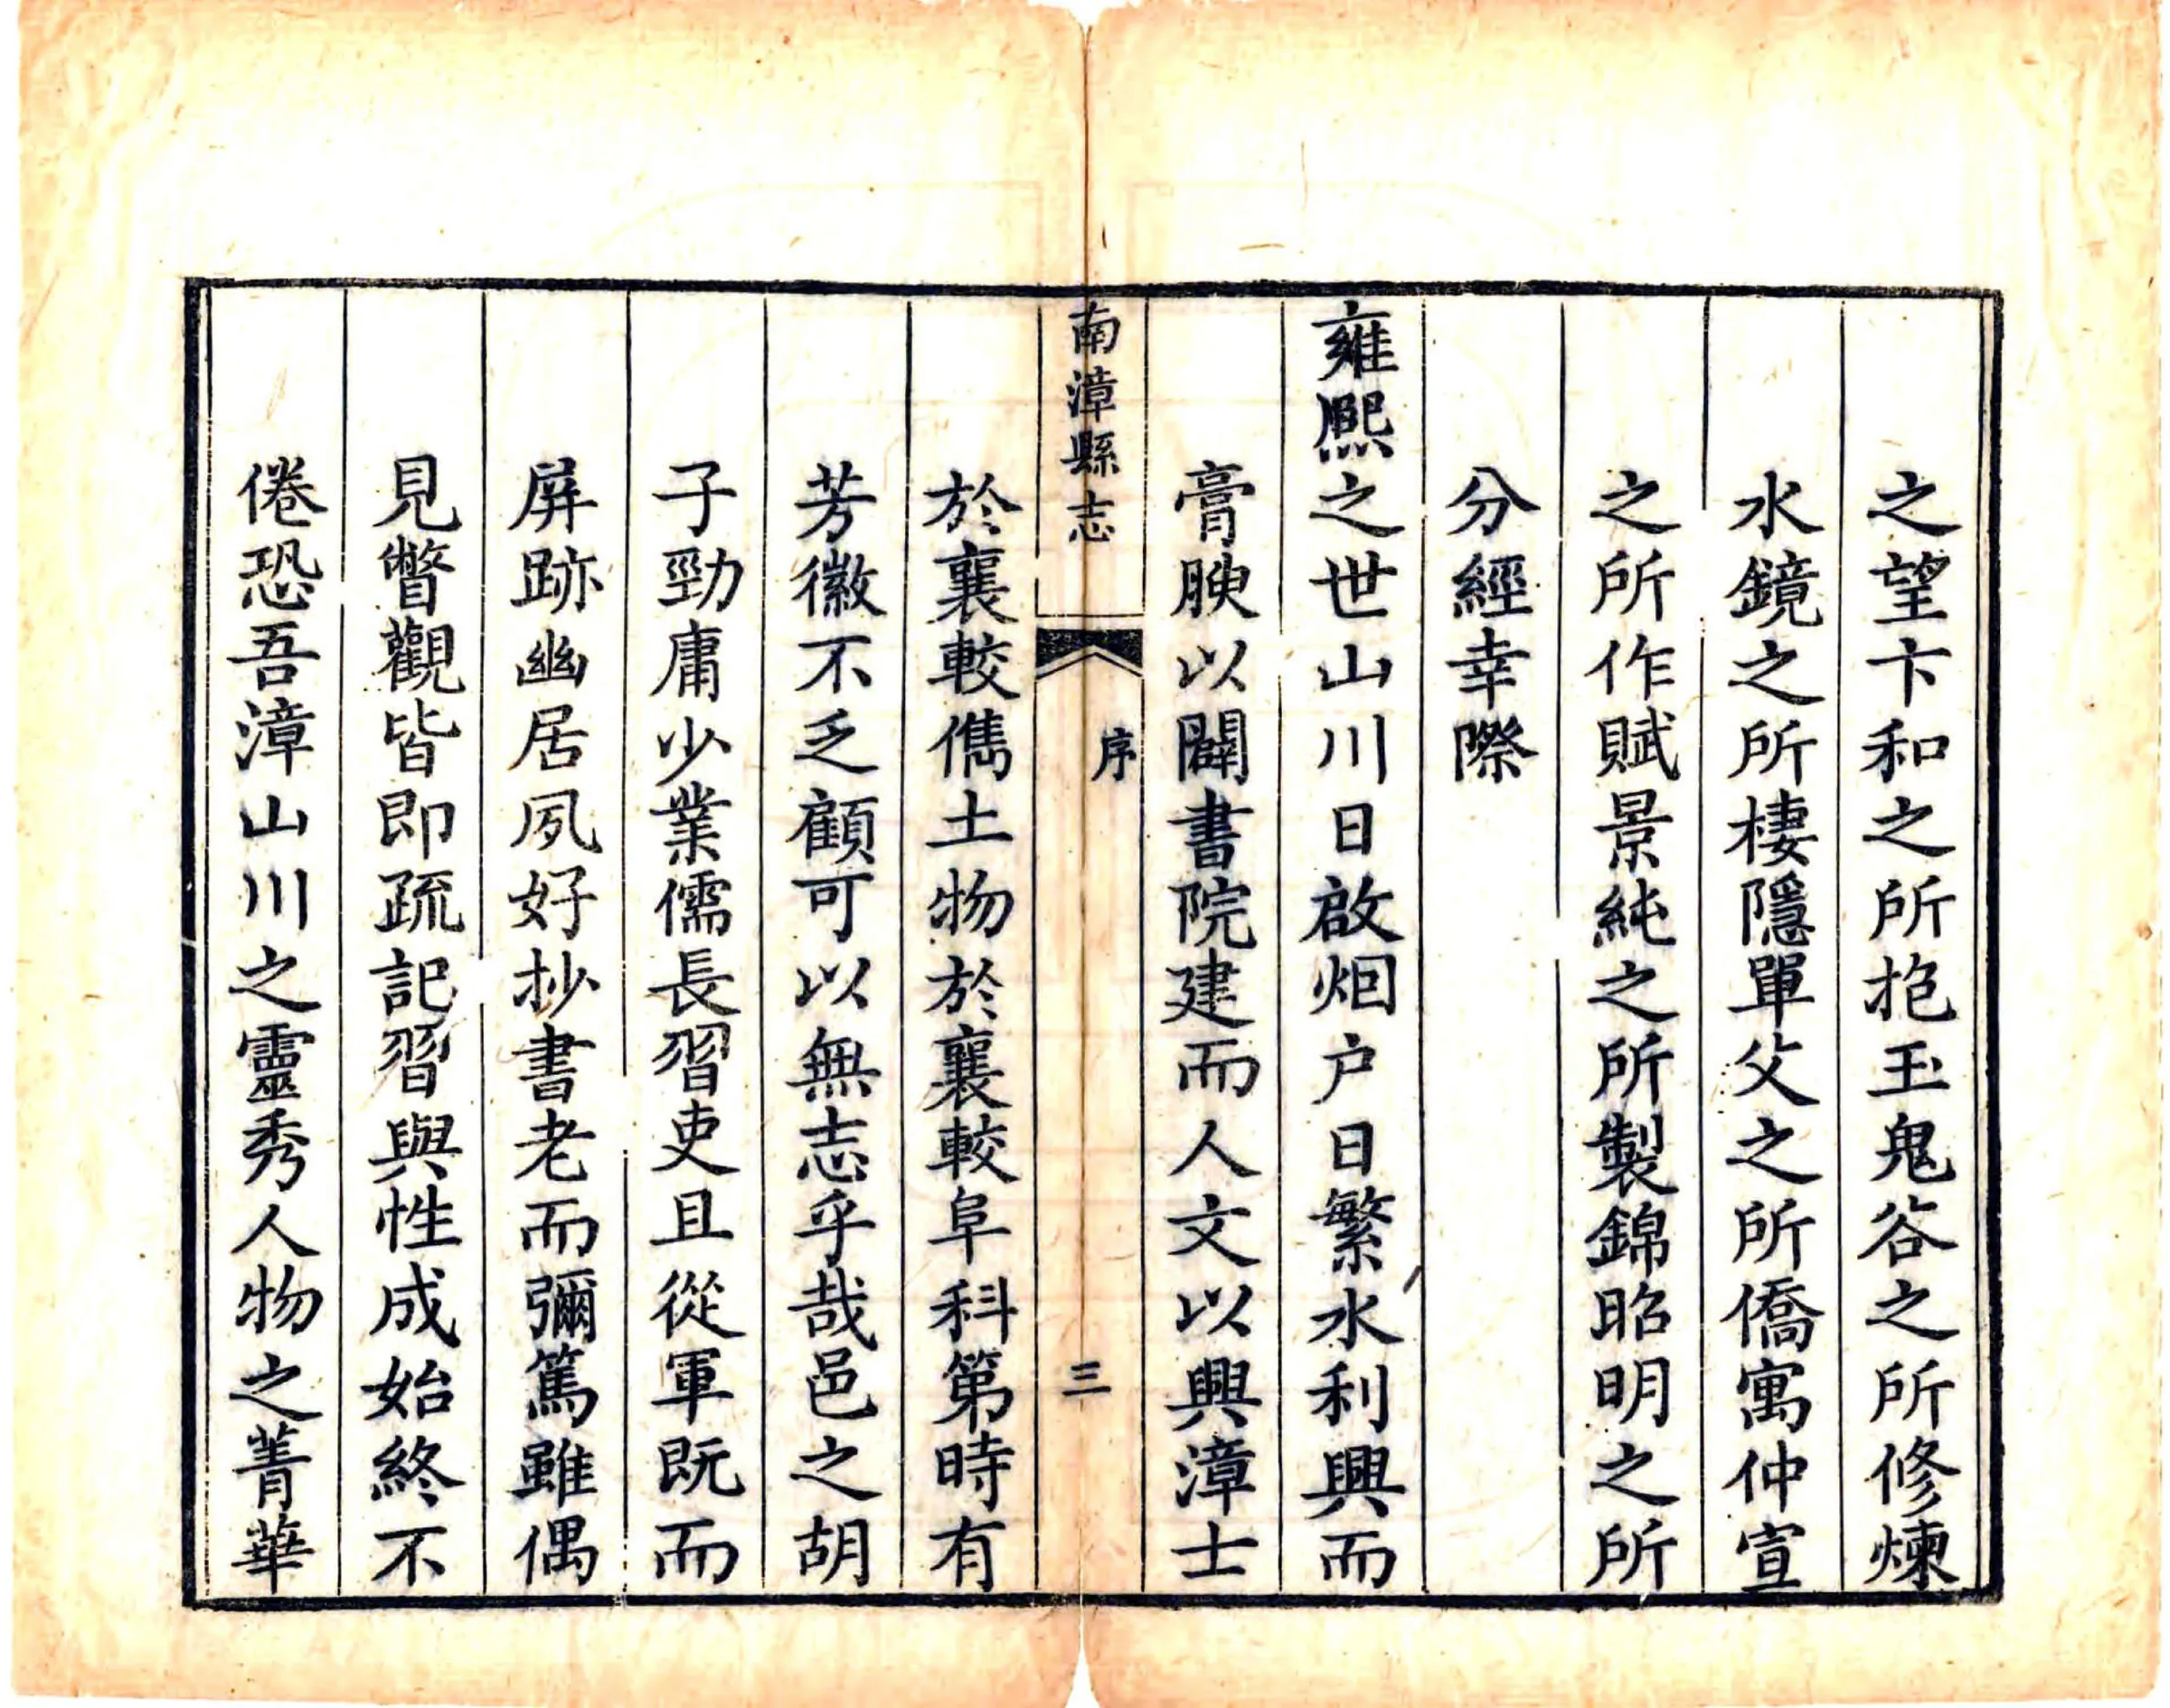 之望卞和之所抱玉鬼谷之所修煉
水鏡之所棲隱單父之所僑寓仲宣
之所作賦景純之所製錦昭明之所
分經幸際
雍熙之世山川日啟烟户日繁水利興而
膏腴以闢書院建而人文以興漳士
南漳縣志
序
三
於襄較儁土物於襄較阜科第時有
芳徽不乏顧可以無志乎哉邑之胡
子勁庸少業儒長習吏且從軍既而
屏跡幽居夙好抄書老而彌篤雖偶
見瞥觀皆即疏記習與性成始終不
倦恐吾漳山川之靈秀人物之菁華